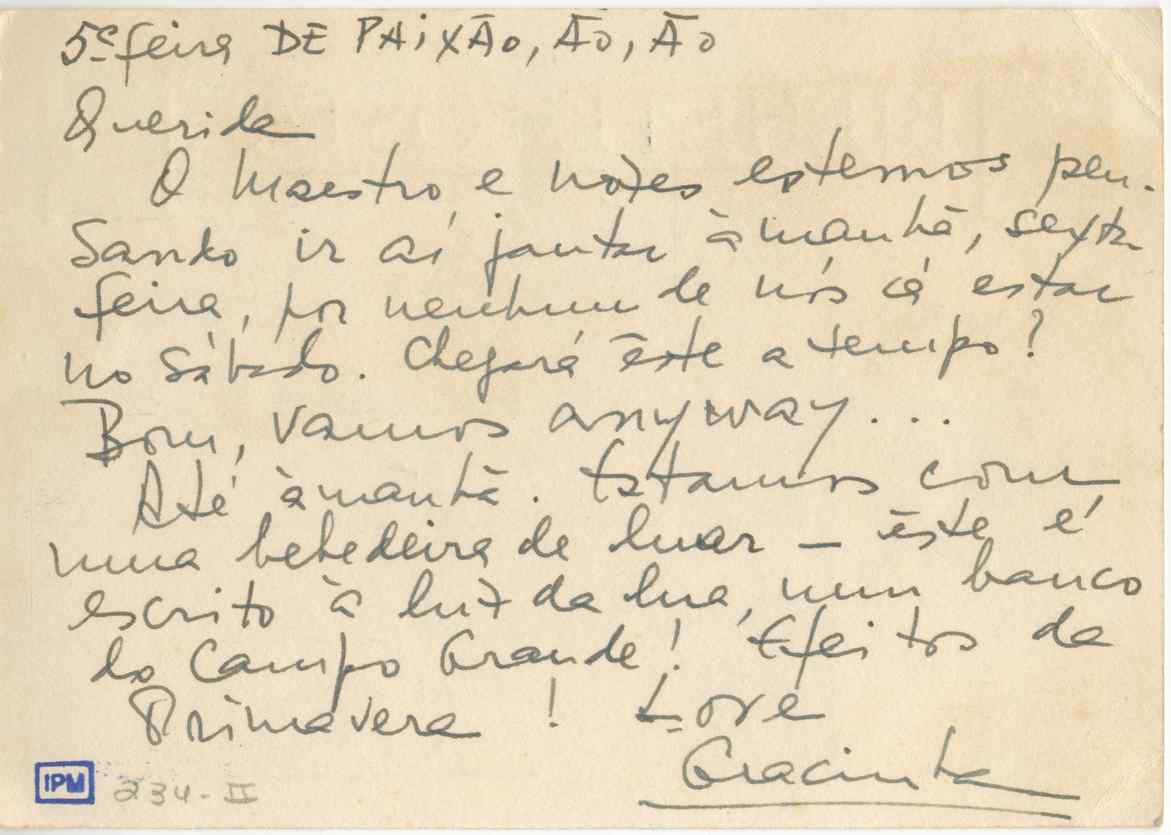 5ª feira DE PAIXÃO, ÃO, ÃO
Querida
O Maestro e estamos pen-
sando ir aí jantar àmanhã, sexta
feira, por nenhum de nós cá estar
no sábado. Chegará êste a tempo?
Bom, vamos anyway...
Até àmanhã. Estamos com
uma bebedeira de luar — êste é
escrito à luz da lua, num banco
do Campo Grande! Efeitos da
Primavera! Love
Gracinha
IPM 234-II